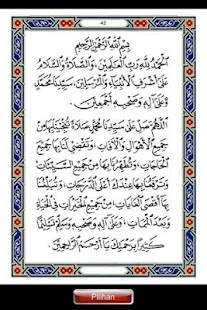 42
بِسْمِ اللَّهِ الرَّحْمَنِ الرَّحِيمِ
اَلْحَمْدُ لِلَّهِ رَبِّ الْعَالَمِينَ، وَالصَّلَاةُ وَالسَّلَامُ
عَلَى أَشْرَفِ الْأَنْبِيَاءِ وَالْمُرْسَلِينَ، سَيِّدِنَا مُحَمَّدٍ
وَعَلَى آلِهِ وَصَحْبِهِ أَجْمَعِينَ.
اَللَّهُمَّ صَلِّ عَلَى سَيِّدِنَا مُحَمَّدٍ صَلَاةً تُنْجِينَا بِهَا مِنْ
جَمِيعِ الْأَهْوَالِ وَالْآفَاتِ، وَتَقْضِي لَنَا بِهَا جَمِيعَ
الْحَاجَاتِ، وَتُطَهِّرُنَا بِهَا مِنْ جَمِيعِ السَّيِّئَاتِ
وَتَرْفَعُنَا بِهَا عِنْدَكَ أَعْلَى الدَّرَجَاتِ، وَتُبَلِّغُنَا
بِهَا أَقْصَى الْغَايَاتِ، مِنْ جَمِيعِ الْخَيْرَاتِ فِي الْحَيَاةِ
وَبَعْدَ الْمَمَاتِ، وَعَلَى آلِهِ وَصَحْبِهِ وَسَلِّمْ تَسْلِيمًا
كَثِيرًا بِرَحْمَتِكَ يَا أَرْحَمَ الرَّاحِمِينَ.
Pilihan